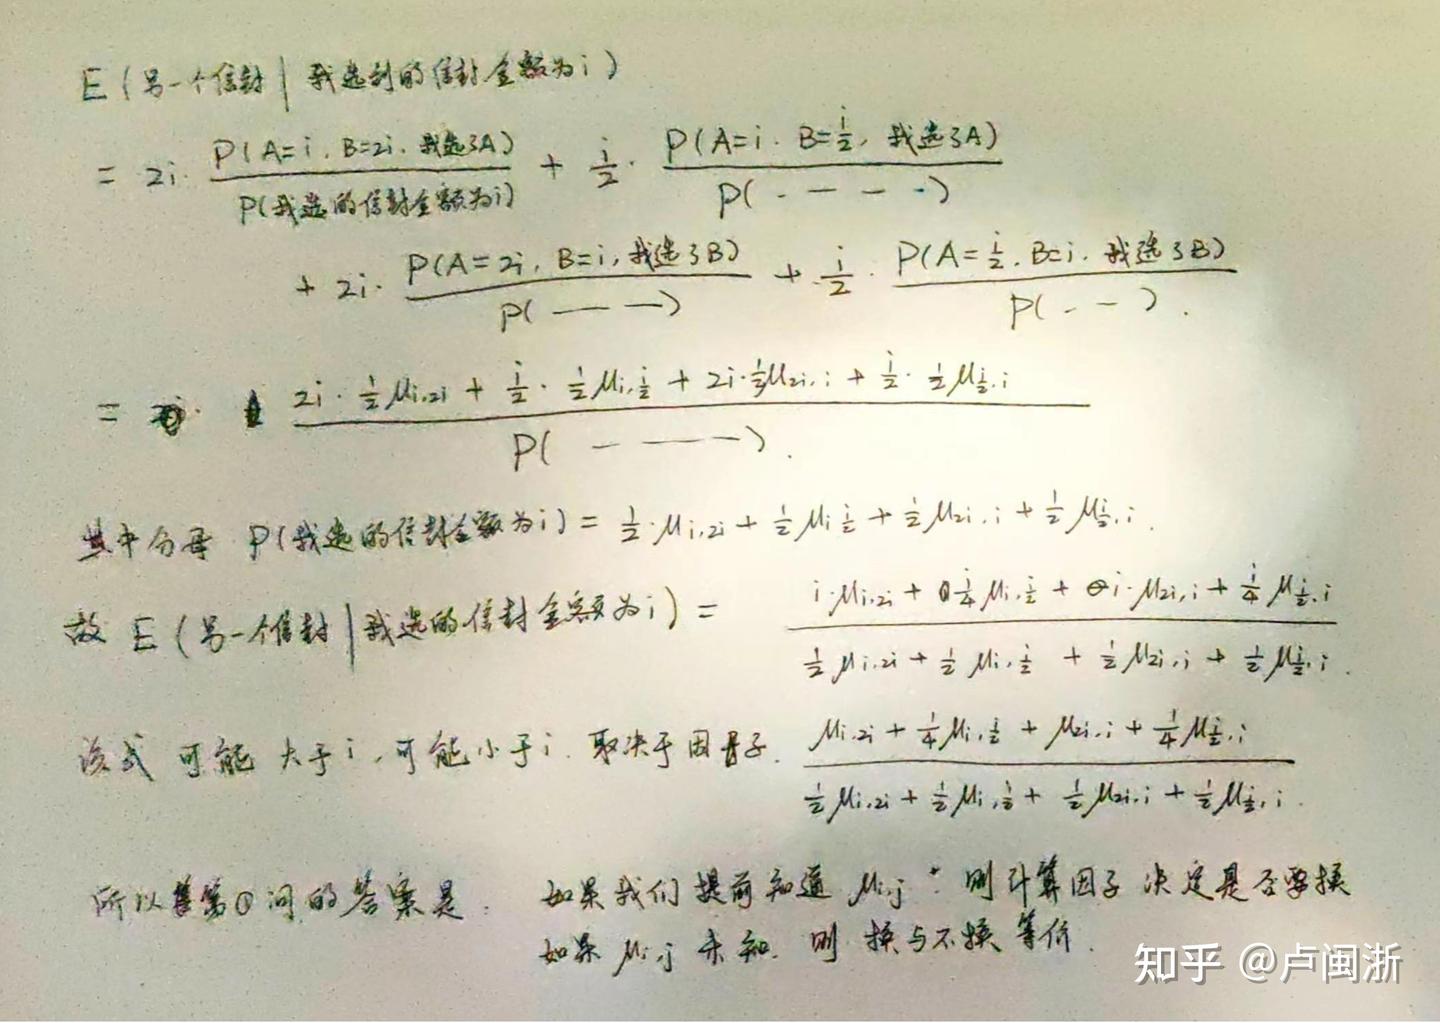 E(另一个信封 | 我选到的信封金额为i)
= 2i · P(A=i, B=2i, 我选了A) / P(我选的信封金额为i) + i/2 · P(A=i, B=i/2, 我选了A) / P(----)
+ 2i · P(A=2i, B=i, 我选了B) / P(---) + i/2 · P(A=i/2, B=i, 我选了B) / P(---).
= (2i · 1/2 μi,2i + i/2 · 1/2 μi,i/2 + 2i · 1/2 μ2i,i + i/2 · 1/2 μi/2,i) / P(----).
其中分母 P(我选的信封金额为i) = 1/2 · μi,2i + 1/2 μi,i/2 + 1/2 μ2i,i + 1/2 μi/2,i.
故 E(另一个信封 | 我选的信封金额为i) = (i · μi,2i + i/4 μi,i/2 + i · μ2i,i + i/4 μi/2,i) / (1/2 μi,2i + 1/2 μi,i/2 + 1/2 μ2i,i + 1/2 μi/2,i).
该式 可能 大于i, 可能小于i. 取决于因子. (μi,2i + 1/4 μi,i/2 + μ2i,i + 1/4 μi/2,i) / (1/2 μi,2i + 1/2 μi,i/2 + 1/2 μ2i,i + 1/2 μi/2,i).
所以第①问的答案是: 如果我们提前知道 μi,j, 则计算因子 决定是否要换
如果 μi,j 未知, 则 换与不换 等价.
知乎 @卢闽浙